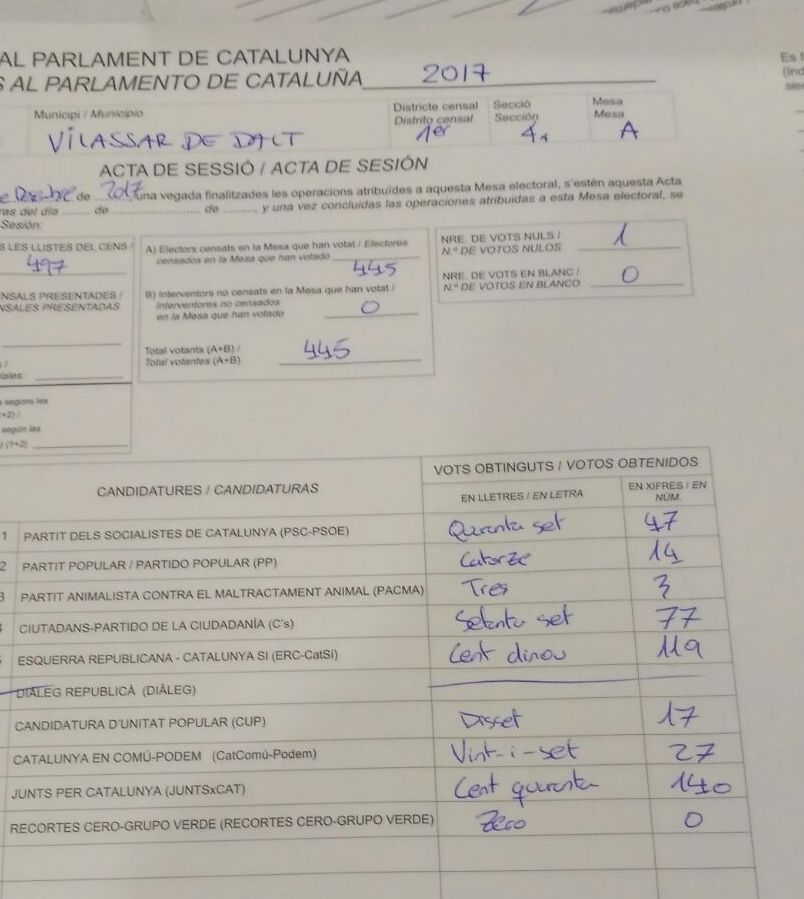 AL PARLAMENT DE CATALUNYA
S AL PARLAMENTO DE CATALUÑA 2017
Municipi / Municipio
VILASSAR DE DALT
Districte censal
Distrito censal
1er
Secció
Sección
4
Mesa
Mesa
A
ACTA DE SESSIÓ / ACTA DE SESIÓN
de 2017 una vegada finalitzades les operacions atribuïdes a aquesta Mesa electoral, s'estén aquesta Acta
ras del día ........ de ........................ de ......... y una vez concluidas las operaciones atribuidas a esta Mesa electoral, se
Sesión:
S LES LLISTES DEL CENS /
497
NSALS PRESENTADES /
NSALES PRESENTADAS
iales:
segons les
+2) /
según las
) (1+2)
A) Electors censats en la Mesa que han votat / Electores
censados en la Mesa que han votado
445
B) Interventors no censats en la Mesa que han votat /
Interventores no censados
en la Mesa que han votado
0
Total votants (A+B) /
Total votantes (A+B)
445
NRE. DE VOTS NULS /
N.º DE VOTOS NULOS
1
NRE. DE VOTS EN BLANC /
N.º DE VOTOS EN BLANCO
0
Es f
(Ind
sie
CANDIDATURES / CANDIDATURAS
VOTS OBTINGUTS / VOTOS OBTENIDOS
EN LLETRES / EN LETRA
EN XIFRES / EN NÚM.
1 PARTIT DELS SOCIALISTES DE CATALUNYA (PSC-PSOE) Quaranta set 47
2 PARTIT POPULAR / PARTIDO POPULAR (PP) Catorze 14
3 PARTIT ANIMALISTA CONTRA EL MALTRACTAMENT ANIMAL (PACMA) Tres 3
CIUTADANS-PARTIDO DE LA CIUDADANÍA (C's) Setanta set 77
ESQUERRA REPUBLICANA - CATALUNYA SI (ERC-CatSí) Cent dinou 119
DIÀLEG REPUBLICÀ (DIÀLEG)
CANDIDATURA D'UNITAT POPULAR (CUP) Disset 17
CATALUNYA EN COMÚ-PODEM (CatComú-Podem) Vint-i-set 27
JUNTS PER CATALUNYA (JUNTSxCAT) Cent quaranta 140
RECORTES CERO-GRUPO VERDE (RECORTES CERO-GRUPO VERDE) Zero 0